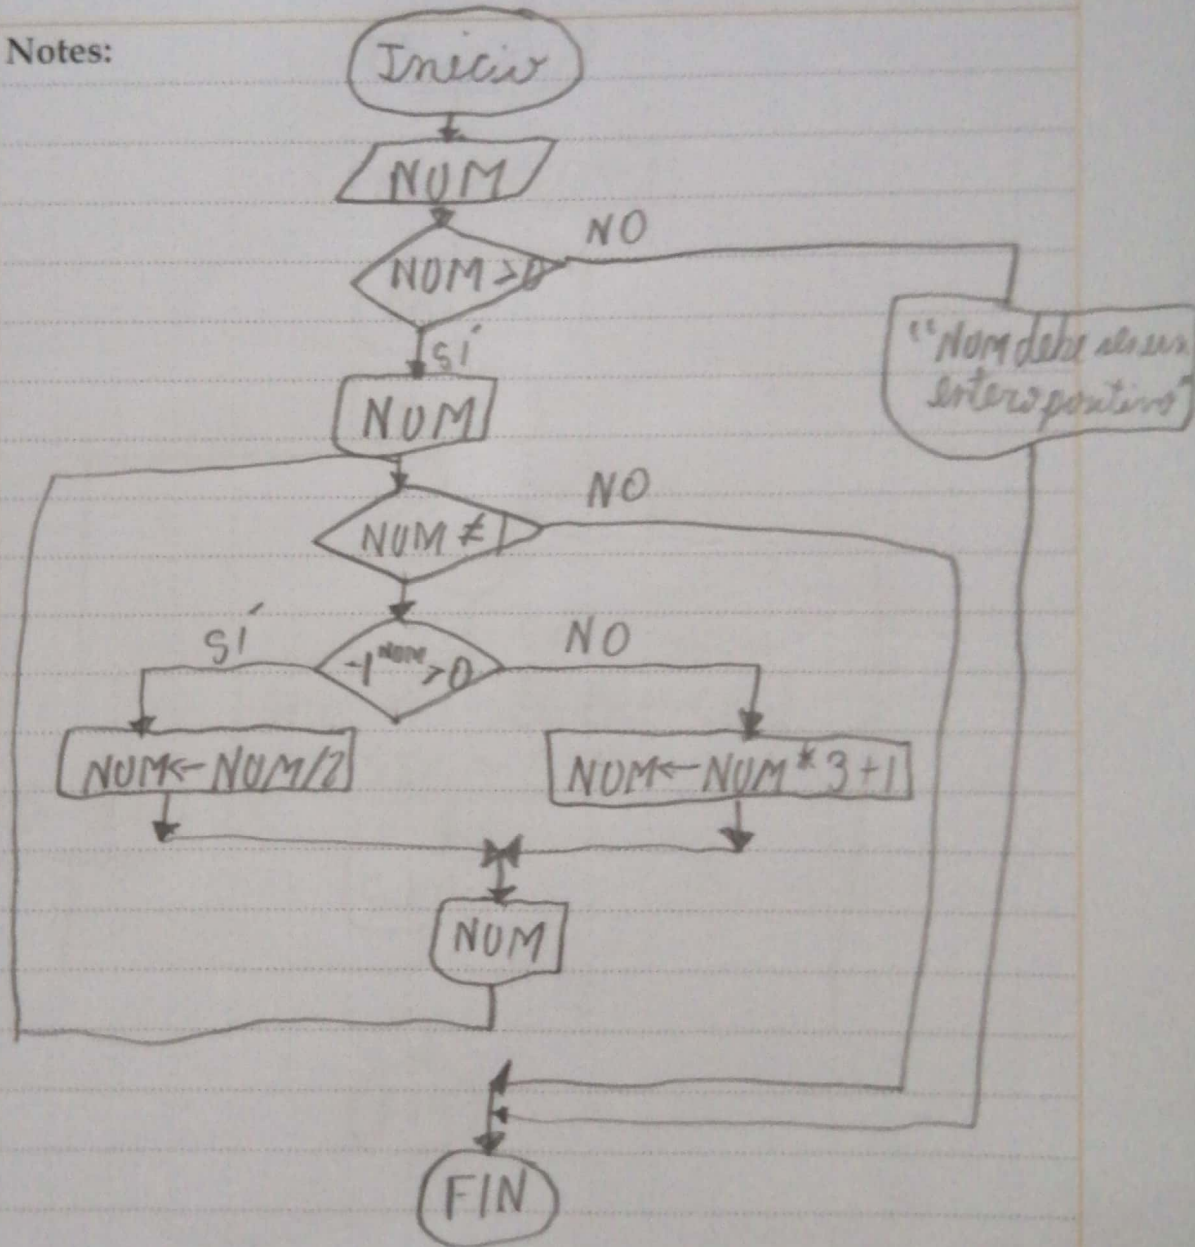 Notes:
Inicio
NUM
NUM > 0
NO
SÍ
"Num debe ser un
entero positivo"
NUM
NUM ≠ 1
NO
-1^NUM > 0
SÍ
NO
NUM ← NUM/2
NUM ← NUM * 3 + 1
NUM
FIN